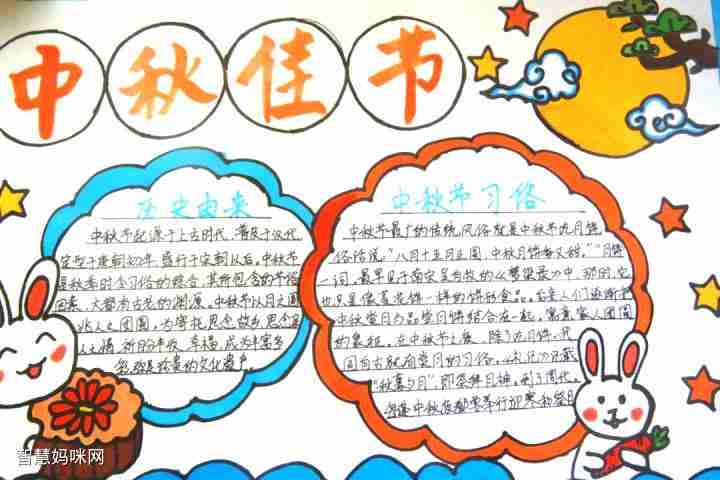 中秋佳节
历史由来
中秋节起源于上古时代，普及于汉代，
定型于唐朝初年，盛行于宋朝以后。中秋节
是秋季时令习俗的综合，其所包含的节俗
因素，大都有古老的渊源。中秋节以月之圆
兆人之团圆，为寄托思念故乡，思念亲
人之情，祈盼丰收、幸福，成为丰富多
彩、弥足珍贵的文化遗产。
中秋节习俗
中秋节最广的传统风俗就是中秋节吃月饼
俗话说："八月十五月正圆，中秋月饼香又甜。""月饼"
一词，最早见于南宋吴自牧的《梦粱录》中，那时，它
也只是像菱花饼一样的饼形食品。后来人们逐渐把
中秋赏月与品尝月饼结合在一起，寓意家人团圆
的象征。在中秋节上，除了吃月饼，我
国自古就有赏月的习俗，《礼记》记载
"秋暮夕月"，即祭拜月神。到了周代，
每逢中秋夜都要举行迎寒和祭月
智慧妈咪网